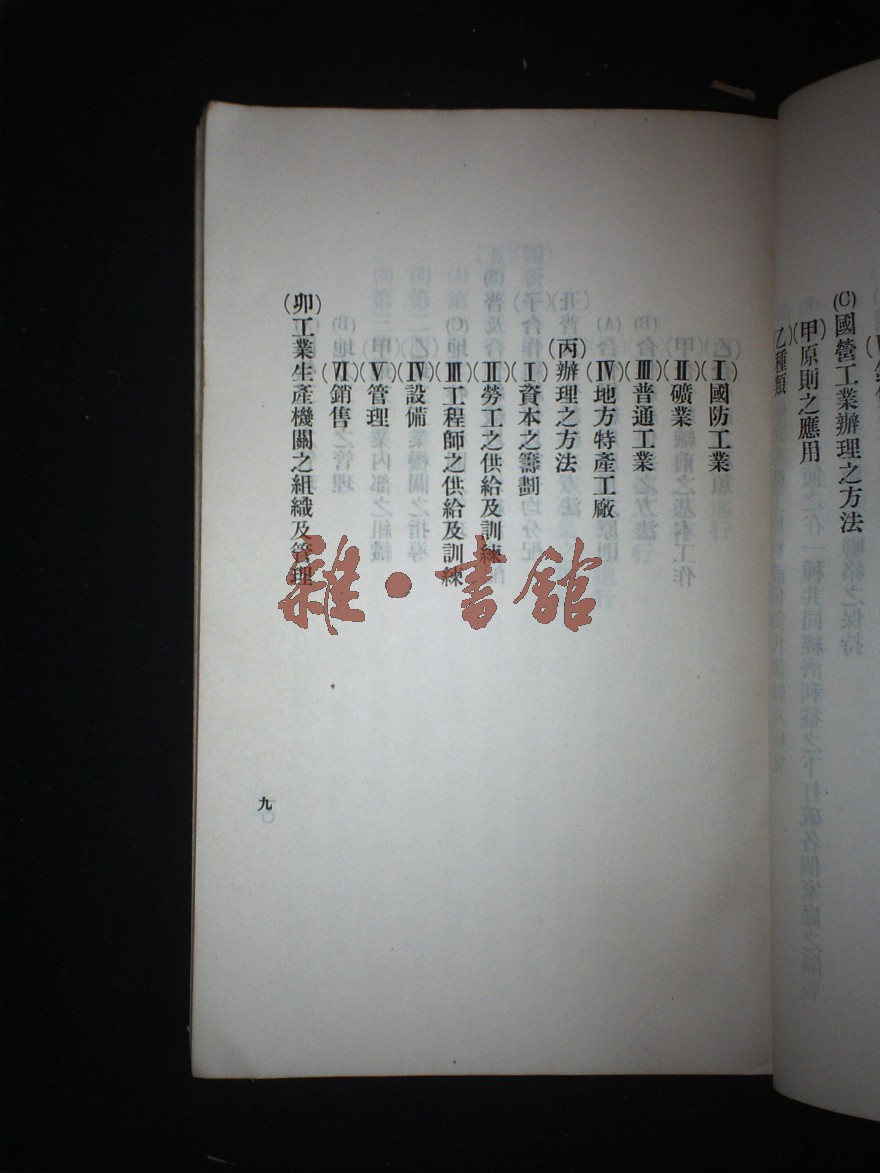 (C)國營工業辦理之方法
(甲)原則之應用
(乙)種類
(Ⅰ)國防工業
(Ⅱ)礦業
(Ⅲ)普通工業
(Ⅳ)地方特產工廠
(丙)辦理之方法
(Ⅰ)資本之籌劃
(Ⅱ)勞工之供給及訓練
(Ⅲ)工程師之供給及訓練
(Ⅳ)設備
(Ⅴ)管理
(Ⅵ)銷售
(卯)工業生產機關之組織及管理
九
雜·書館